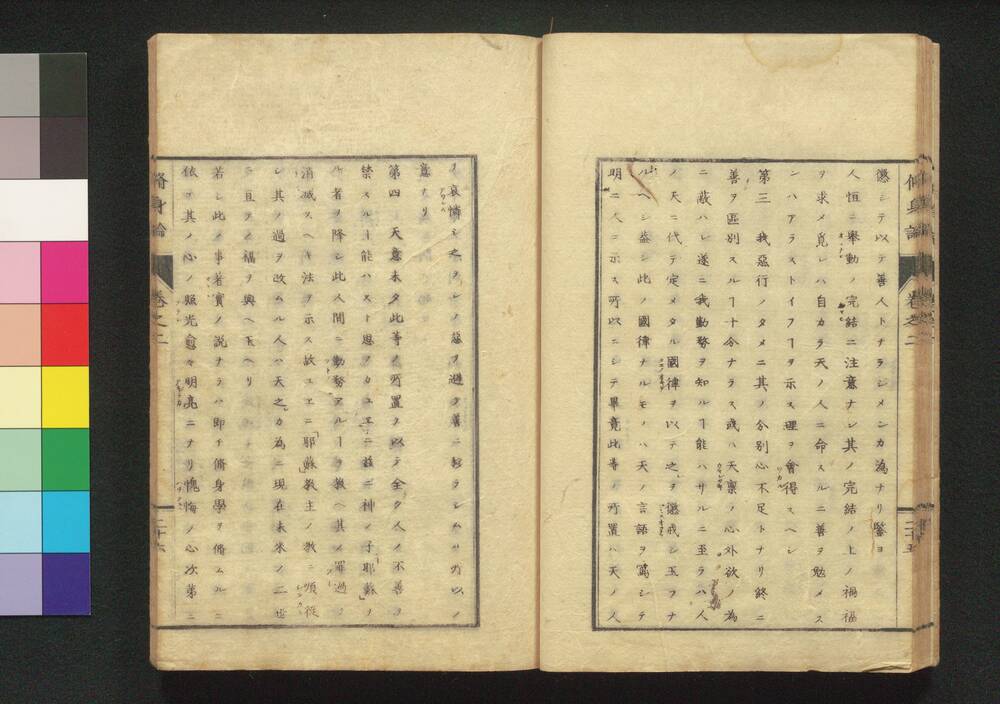 懲シテ以テ善人トナラシメンカ為ナリ鑒ヨ
人恒ニ舉動ノ完結ニ注意ナシ其ノ完結ノ上ノ禍福
ヲ求メ覓レハ自カラ天ノ人ニ命スルニ善ヲ勉メス
ンハアラストイフヿヲ示ス理ヲ會得スヘシ
第三 我惡行ノタメニ其ノ分別心不足トナリ終ニ
善ヲ區別スルヿ十全ナラス或ハ天稟ノ心外欲ノ為
ニ蔽ハレ遂ニ我勤務ヲ知ルヿ能ハサルニ至ラハ人
ノ天ニ代テ定メタル國律ヲ以テ之ヲ懲戒シ玉フナ
ルヘシ盖シ此ノ國律ナルモノハ天ノ言語ヲ寫シテ
明ニ人ニ示ス所以ニシテ畢竟此等ノ所置ハ天ノ人
脩身論 卷之二 二十五
ヲ哀憐シ之ヲシテ惡ヲ避ケ善ニ移ラシムル所以ノ
意ナリ
第四 天意未タ此等ノ所置ヲ以テ全ク人ノ不善ヲ
禁スルヿ能ハスト思フカユエニ茲ニ神ノ子耶蘇ノ
ル者ヲ降シ此人間ニ勤務アルヿヲ教ヘ其ノ罪過ヲ
消滅スヘキ法ヲ示ス故ユエニ「耶蘇」教主ノ教ニ順從
シ其ノ過ヲ改ムル人ハ天之カ為ニ現在未来ノ二世
ニ亘テノ福ヲ與ヘ玉ヘリ
若シ此ノ事著實ノ説ナラハ即チ脩身學ヲ脩ムルニ
依テ其ノ心ノ照光愈々明亮ニナリ愧悔ノ心次第ニ
脩身論 卷之二 二十六